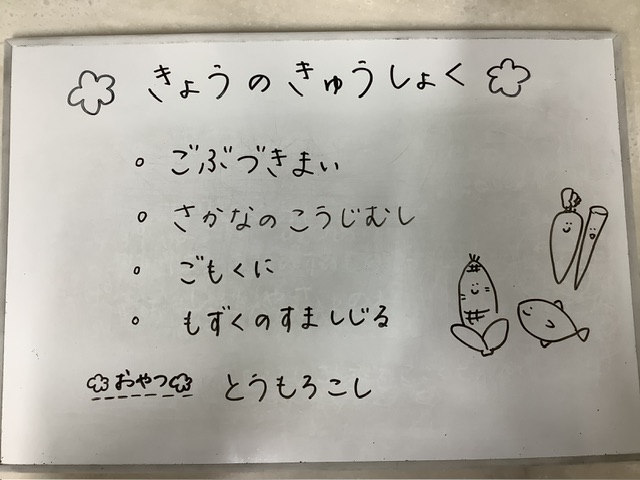 きょうのきゅうしょく
○ ごぶづきまい
○ さかなのこうじむし
○ ごもくに
○ もずくのすましじる
おやつ とうもろこし